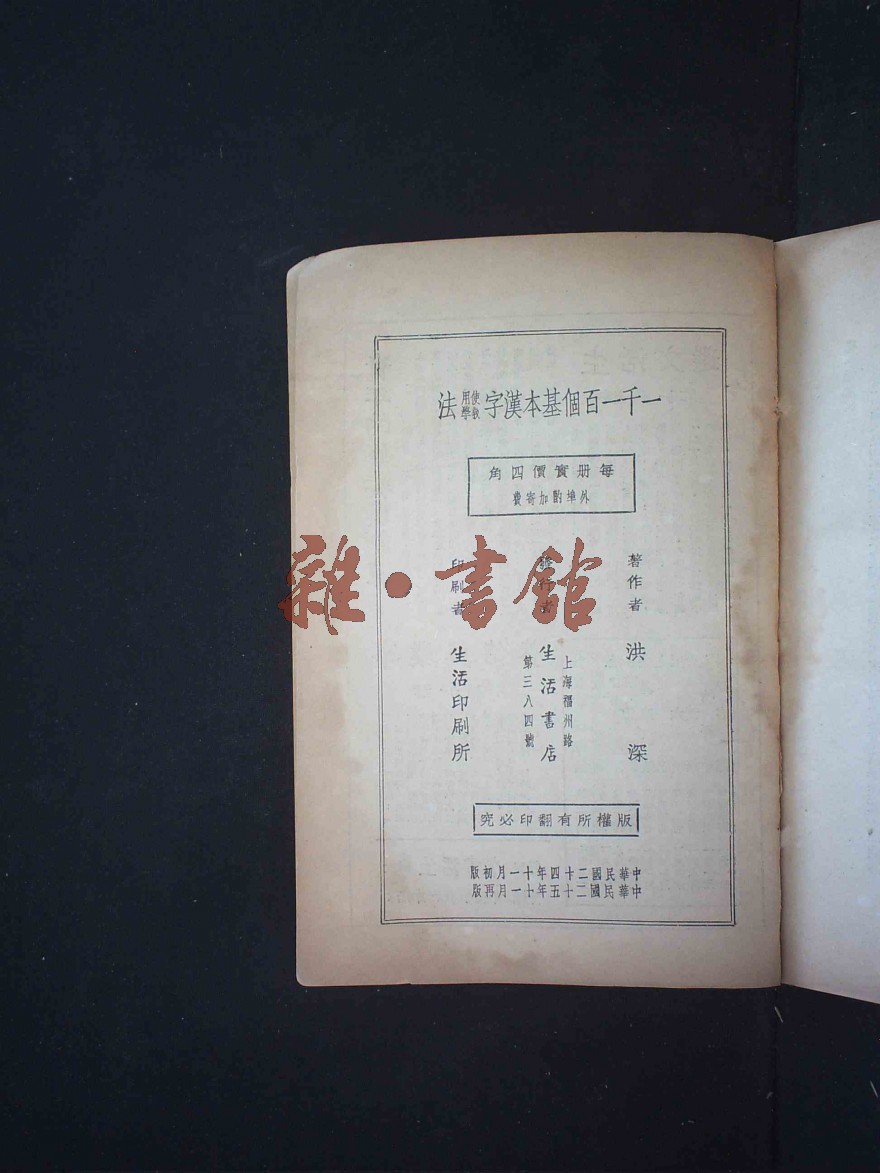 一千一百個基本漢字使用教學法
每册實價四角
外埠酌加寄費
著作者 洪深
發行者 生活書店
上海福州路
第三八四號
印刷者 生活印刷所
版權所有翻印必究
中華民國二十四年十一月初版
中華民國二十五年十一月再版
雜·書館